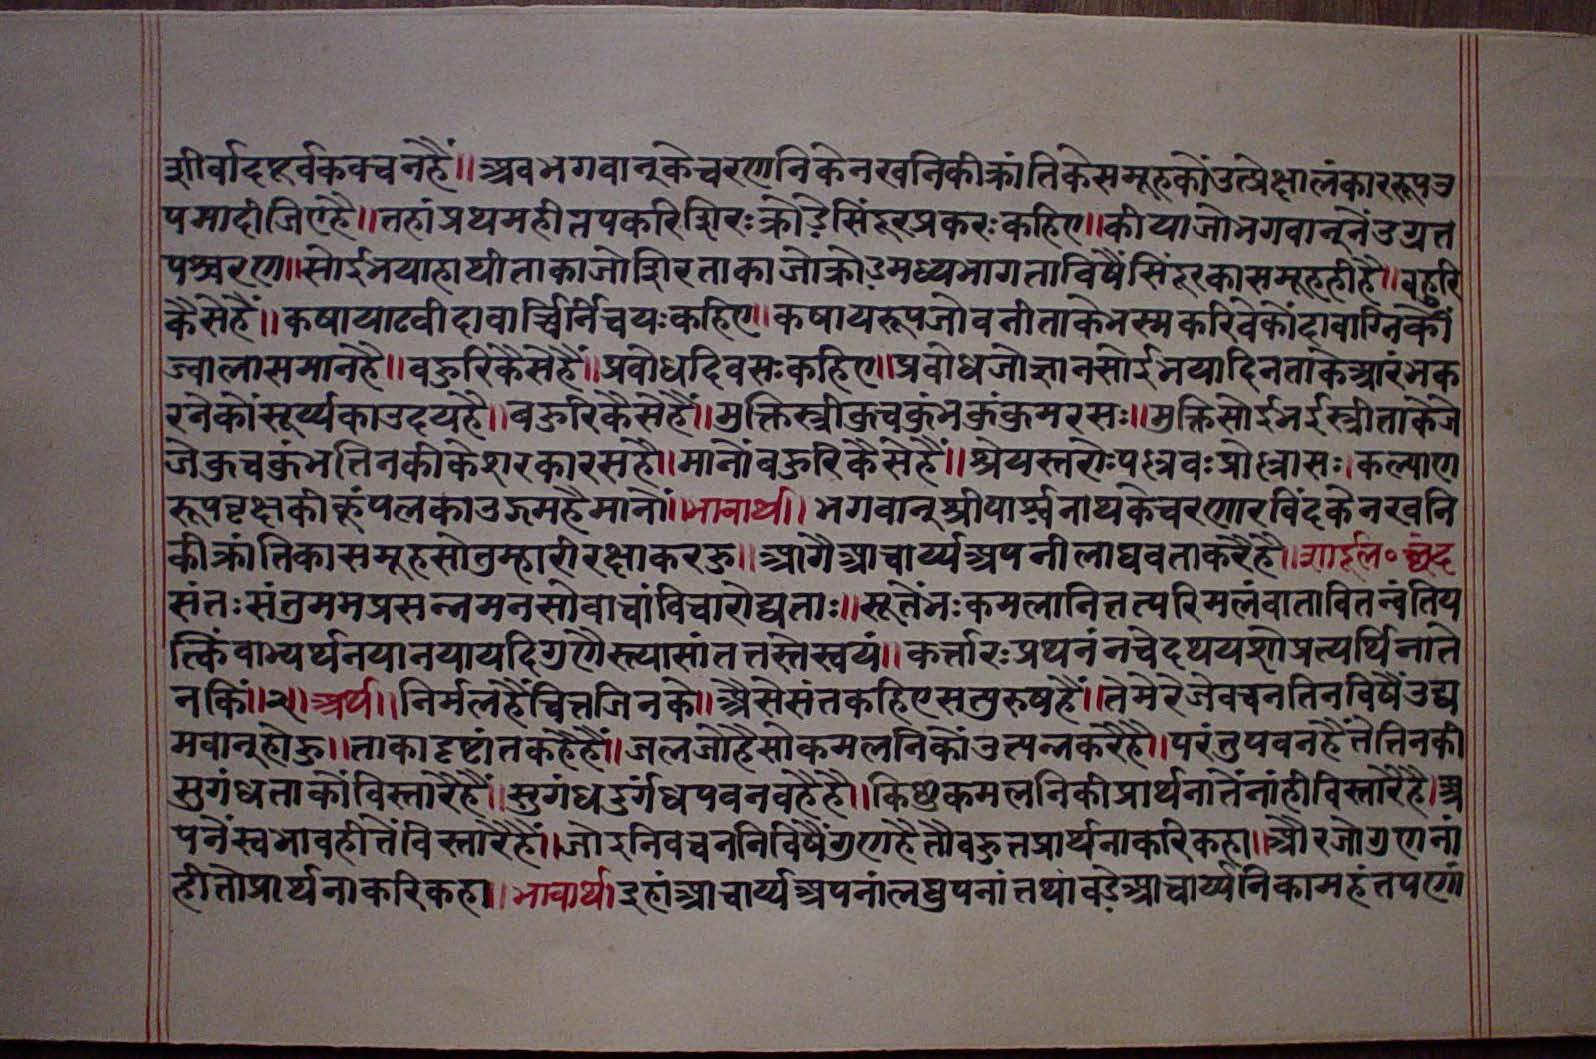 शीर्वादपूर्वकवचनहैं॥ अब भगवान्केचरणनिकेनखनिकीक्रांतिकेसमूहकोंउत्प्रेक्षालंकाररूपउ
पमादीजिएहै॥ तहांप्रथमहीतपकरिशिरःक्रोडेसिंदूरप्रकरःकहिए॥ कीयाजोभगवान्नेंउग्रत
पश्चरण॥ सोईभयाहाथीताकाजोशिरताकाजोक्रोडमध्यभागताविषैंसिंदूरकासमूहहीहै॥ बहुरि
कैसेहैं॥ कषायाटवीदावार्च्चिर्निचयःकहिए॥ कषायरूपजोवनीताकेभस्मकरिवेकोंदावाग्निकी
ज्वालासमानहै॥ बहुरिकैसेहैं॥ प्रबोधदिवसःकहिए॥ प्रबोधजोज्ञानसोईभयादिनताकेआरंभक
रनेकोंसूर्य्यकाउदयहै॥ बहुरिकैसेहैं॥ मुक्तिस्त्रीकुचकुंभकुंकुमरसः॥ मुक्तिसोईभईस्त्रीताकेजे
जेकुचकुंभतिनकीकेशरकारसहै॥ मानोंबहुरिकैसेहैं॥ श्रेयस्तरोःपल्लवःप्रोल्लासः। कल्याण
रूपवृक्षकीकूंपलकाउजमहैमानों॥ भावार्थ॥ भगवान्श्रीपार्श्वनाथकेचरणारविंदकेनखनि
कीक्रांतिकासमूहसोतुम्हारीरक्षाकरहु॥ आगैआचार्य्यअपनीलाघवताकरैहै॥ शार्दूल॰ छंद
संतःसंतुममप्रसन्नमनसोवाचांविचारोद्यताः॥ सूतेंभःकमलानितत्परिमलंवातावितन्वंतिय
त्किंवाभ्यर्थनयानयायदिगुणोस्त्यासांततस्तेस्वयं॥ कर्त्तारःप्रथनंनचेदथयशोप्रत्यर्थिनाते
नकिं॥२॥ अर्थ॥ निर्मलहैंचित्तजिनके॥ ऐसेसंतकहिएसत्पुरुषहैं॥ तेमेरेजेवचनतिनविषैंउद्य
मवान्होहु॥ ताकादृष्टांतकहैहैं॥ जलजोहैसोकमलनिकोंउत्पन्नकरैहै॥ परंतुपवनहैंतेतिनकी
सुगंधताकोंविस्तारैहैं॥ सुगंधदुर्गंधपवनवहैहै॥ किछुकमलनिकीप्रार्थनातेंनांहीविस्तारैहै।अ
पनेंस्वभावहीतेंविस्तारैहै॥ जोइनिवचननिविषैंगुणहैतौबहुतप्रार्थनाकरिकहा॥ औरजोगुणनां
हीतोप्रार्थनाकरिकहा॥ भावार्थ॥ इहांआचार्य्यअपनांलघुपनांतथाबडेआचार्य्यनिकामहंतपणां